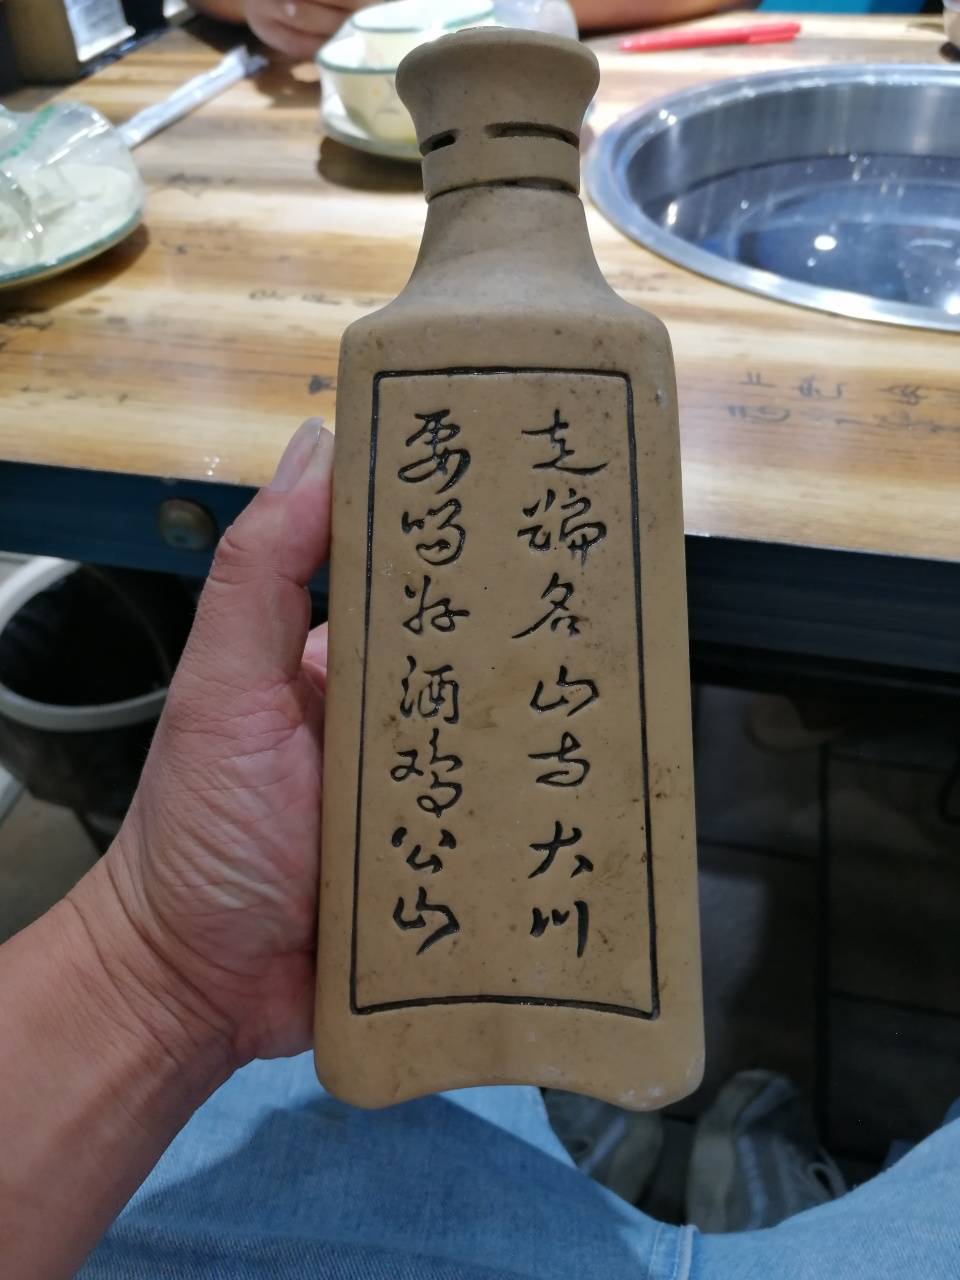 走遍名山与大川
要喝好酒鸡公山